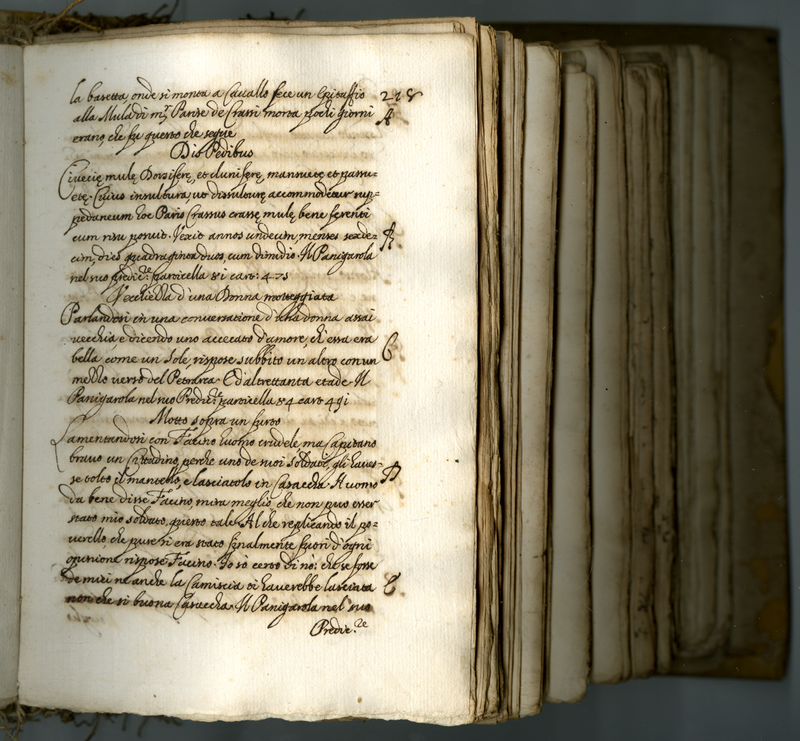 la basetta onde si monta a Cavallo fece un Epitaffio 218
alla Mula di m.r Panse de Crassi morta pochi giorni A
erano che fu questo che segue
Dis Pedibus
Ciuecię mulę Dorsiferę, et cluniferę, mansuetę et passu=
etę. Cuius insultura, ut dissulturę accommodetur sup=
pedaneum hoc Paris Crassus crassę mulę bene ferenti
cum risu posuit. Vixit annos undecim, menses sexde= A
cim, dies quadraginta duos, cum dimidio. Il Panigarola
nel suo predic.re particella 81 cart: 471
Vecchiezza d'una Donna motteggiata
Parlandosi in una conversatione d'una donna assai
vecchia e dicendo uno accecato d'amore, ch' essa era
bella come un Sole, rispose subbito un altro con un C
mezzo verso del Petrarca. Ed altrettanta etade. Il
Panigarola nel suo Predic.re particella 84 cart 491
Motto sopra un furto
Lamentandosi con Facino huomo crudele ma Capitano
bravo un Cittadino, perche uno de suoi soldati, gli haues=
se tolto il mantello, e lasciatolo in Casaccha. Huomo
da bene disse Facino, mira meglio, che non puo esser
stato mio soldato, questo tale. Al che replicando il po=
uerello, che pure si era stato finalmente fuori d'ogni
opinione rispose Facino. Io so certo di nò: che se fosse
de miei ne anche la Camiscia ti hauerebbe lasciata C
non che si buona Casaccha. Il Panigarola nel suo
Predic.re